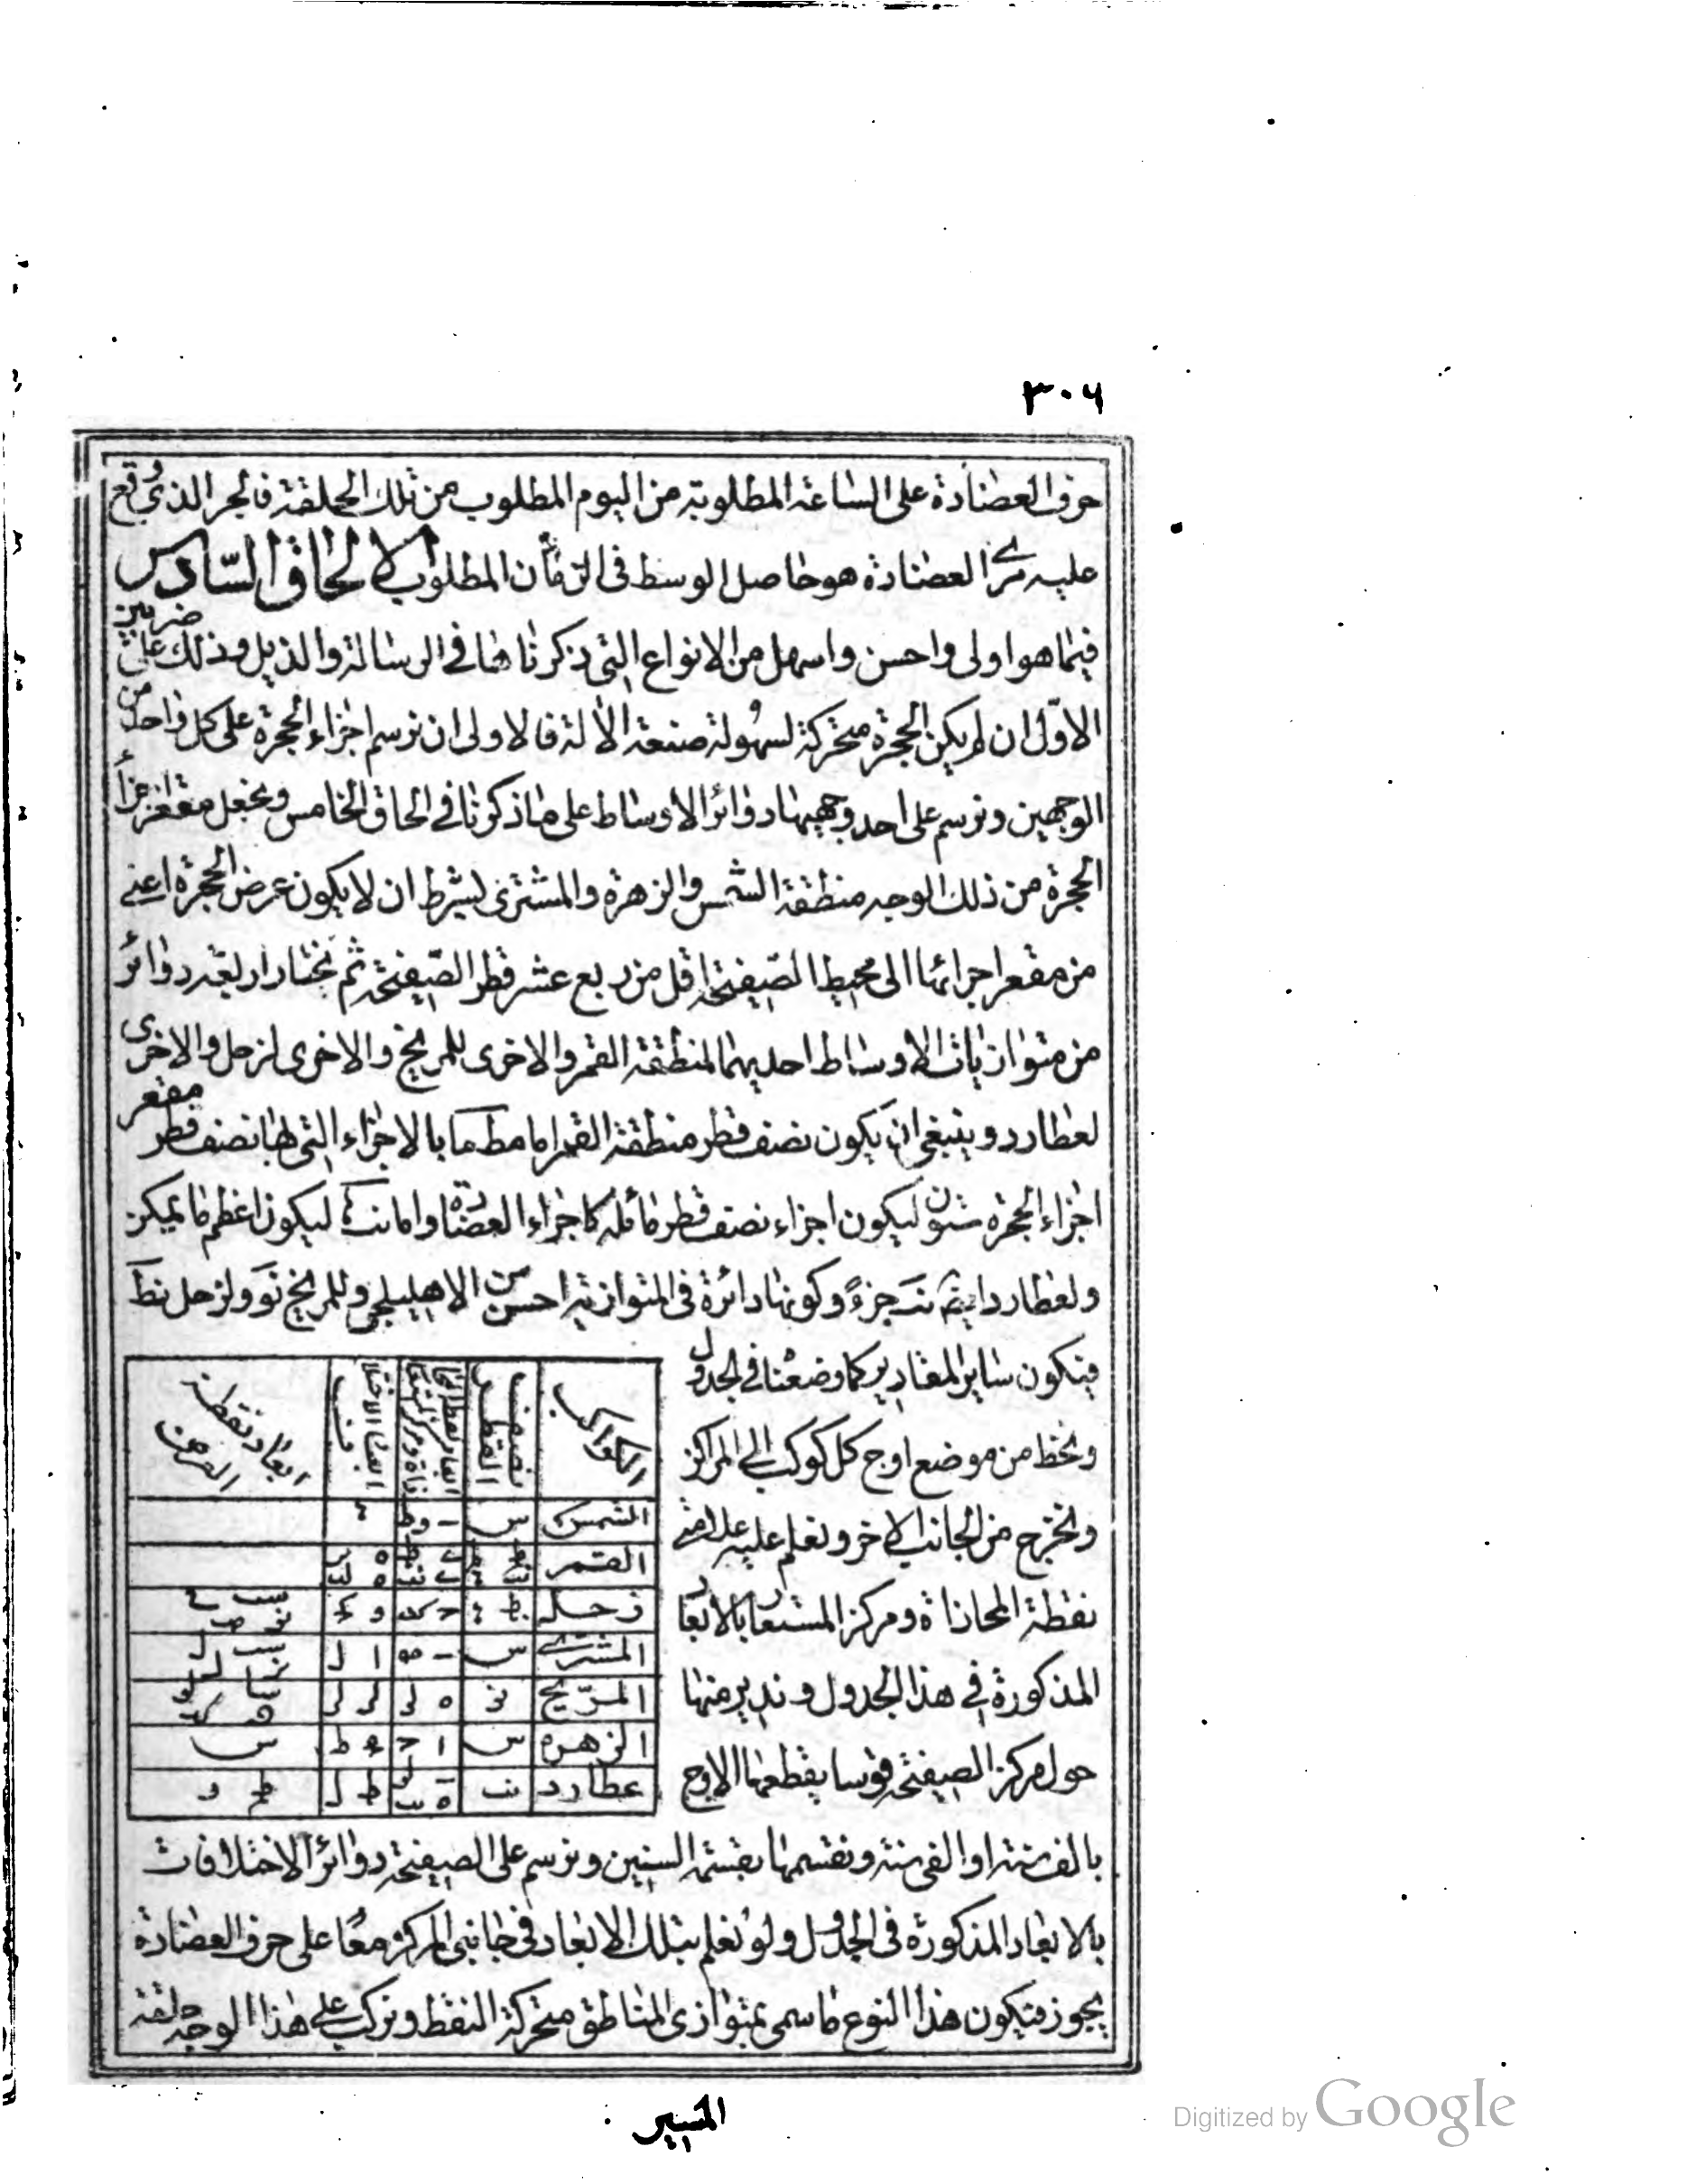 ٣٠٦
حرف العضادة على الساعة المطلوبة من اليوم المطلوب من تلك الحلقة فالجزء الذي وقع
عليه مري العضادة هو حاصل الوسط في الزمان المطلوب الالحاق السادس
فيما هو اولى واحسن واسهل من الانواع التي ذكرناها في الرسالة والذيل وذلك على ضربين
الاول ان لم يكن الحجرة متحركة لسهولة صنعة الآلة فالاولى ان نرسم اجزاء الحجرة على كل واحد من
الوجهين ونرسم على احد وجهيها دوائر الاوساط على ما ذكرنا في الحاق الخامس ونجعل مقعر اجزاء
الحجرة من ذلك الوجه منطقة الشمس والزهرة والمشترى بشرط ان لا يكون عرض الحجرة اعني
من مقعر اجزائها الى محيط الصفيحة اقل من ربع عشر قطر الصفيحة ثم نختار اربعة دوائر
من متوازيات الاوساط احديهما لمنطقة القمر والاخرى للمريخ والاخرى لزحل والاخرى
لعطارد وينبغي ان يكون نصف قطر منطقة القمر اما مط ما بالاجزاء التي بها نصف قطر مقعر
اجزاء الحجرة ستون ليكون اجزاء نصف قطر مائله كاجزاء العضادة واما نب ليكون اعظم ما يمكن
ولعطارد ايضا نب جزءً وكونها دائرة في المتوازية احسن من الاهليلجى وللمريخ نو ولزحل نط
فيكون ساير المقادير كما وضعنا في الجدول
ونخط من موضع اوج كل كوكب الى المراكز
ونخرج من الجانب الاخر ونعلم عليه علامتي
نقطة المحاذاة ومركز المستعار بالابعاد
المذكورة في هذا الجدول وندير منها
حول مركز الصفيحة قوسا يقطعها الاوج
الكواكب نصف القطر ابعاد نقطة المحاذاة ومركز ابعاد الاختلاف ابعاد نقطة العرض
الشمس س
القمر
زحل
المشترى س
المريخ
الزهرة س
عطارد نب
بالف سنة او الفي سنة ونقسمها بقسمة السنين ونرسم على الصفيحة دوائر الاختلافات
بالابعاد المذكورة في الجدول ولو نعلم بتلك الابعاد في جانبي المركز معًا على حرف العضادة
يجوز فيكون هذا النوع ما سمى بمتوازى المناطق متحركة النقط ونركب على هذا الوجه حلقة
المسير
Digitized by Google